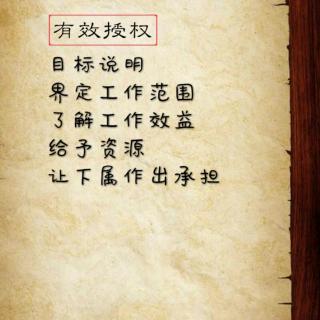 有效授权
目标说明
界定工作范围
了解工作效益
给予资源
让下属作出承担